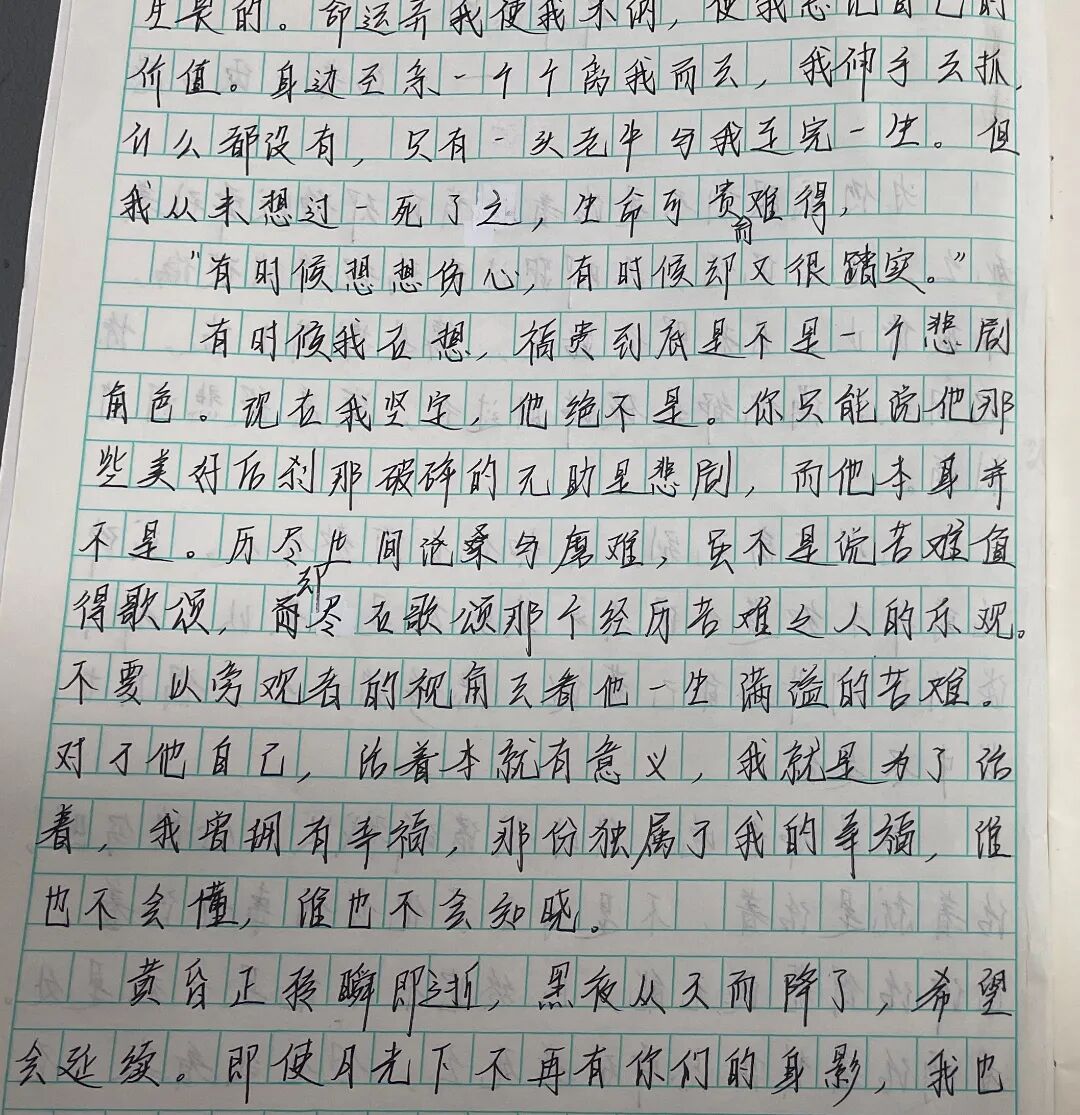 生长的。命运弄我使我木讷，使我忘记自己的
价值。身边至亲一个个离我而去，我伸手去抓，
什么都没有，只有一头老牛与我走完一生。但
我从未想过一死了之，生命可贵而难得，
"有时候想想伤心，有时候却又很踏实。"
有时候我在想，福贵到底是不是一个悲剧
角色。现在我坚定，他绝不是。你只能说他那
些美好后刹那破碎的无助是悲剧，而他本身并
不是。历尽世间沧桑与磨难，虽不是说苦难值
得歌颂，而却尽在歌颂那个经历苦难之人的乐观。
不要以旁观者的视角去看他一生满溢的苦难。
对于他自己，活着本就有意义，我就是为了活
着，我曾拥有幸福，那份独属于我的幸福，谁
也不会懂，谁也不会知晓。
黄昏正转瞬即逝，黑夜从天而降了，希望
会延续。即使月光下不再有你们的身影，我也